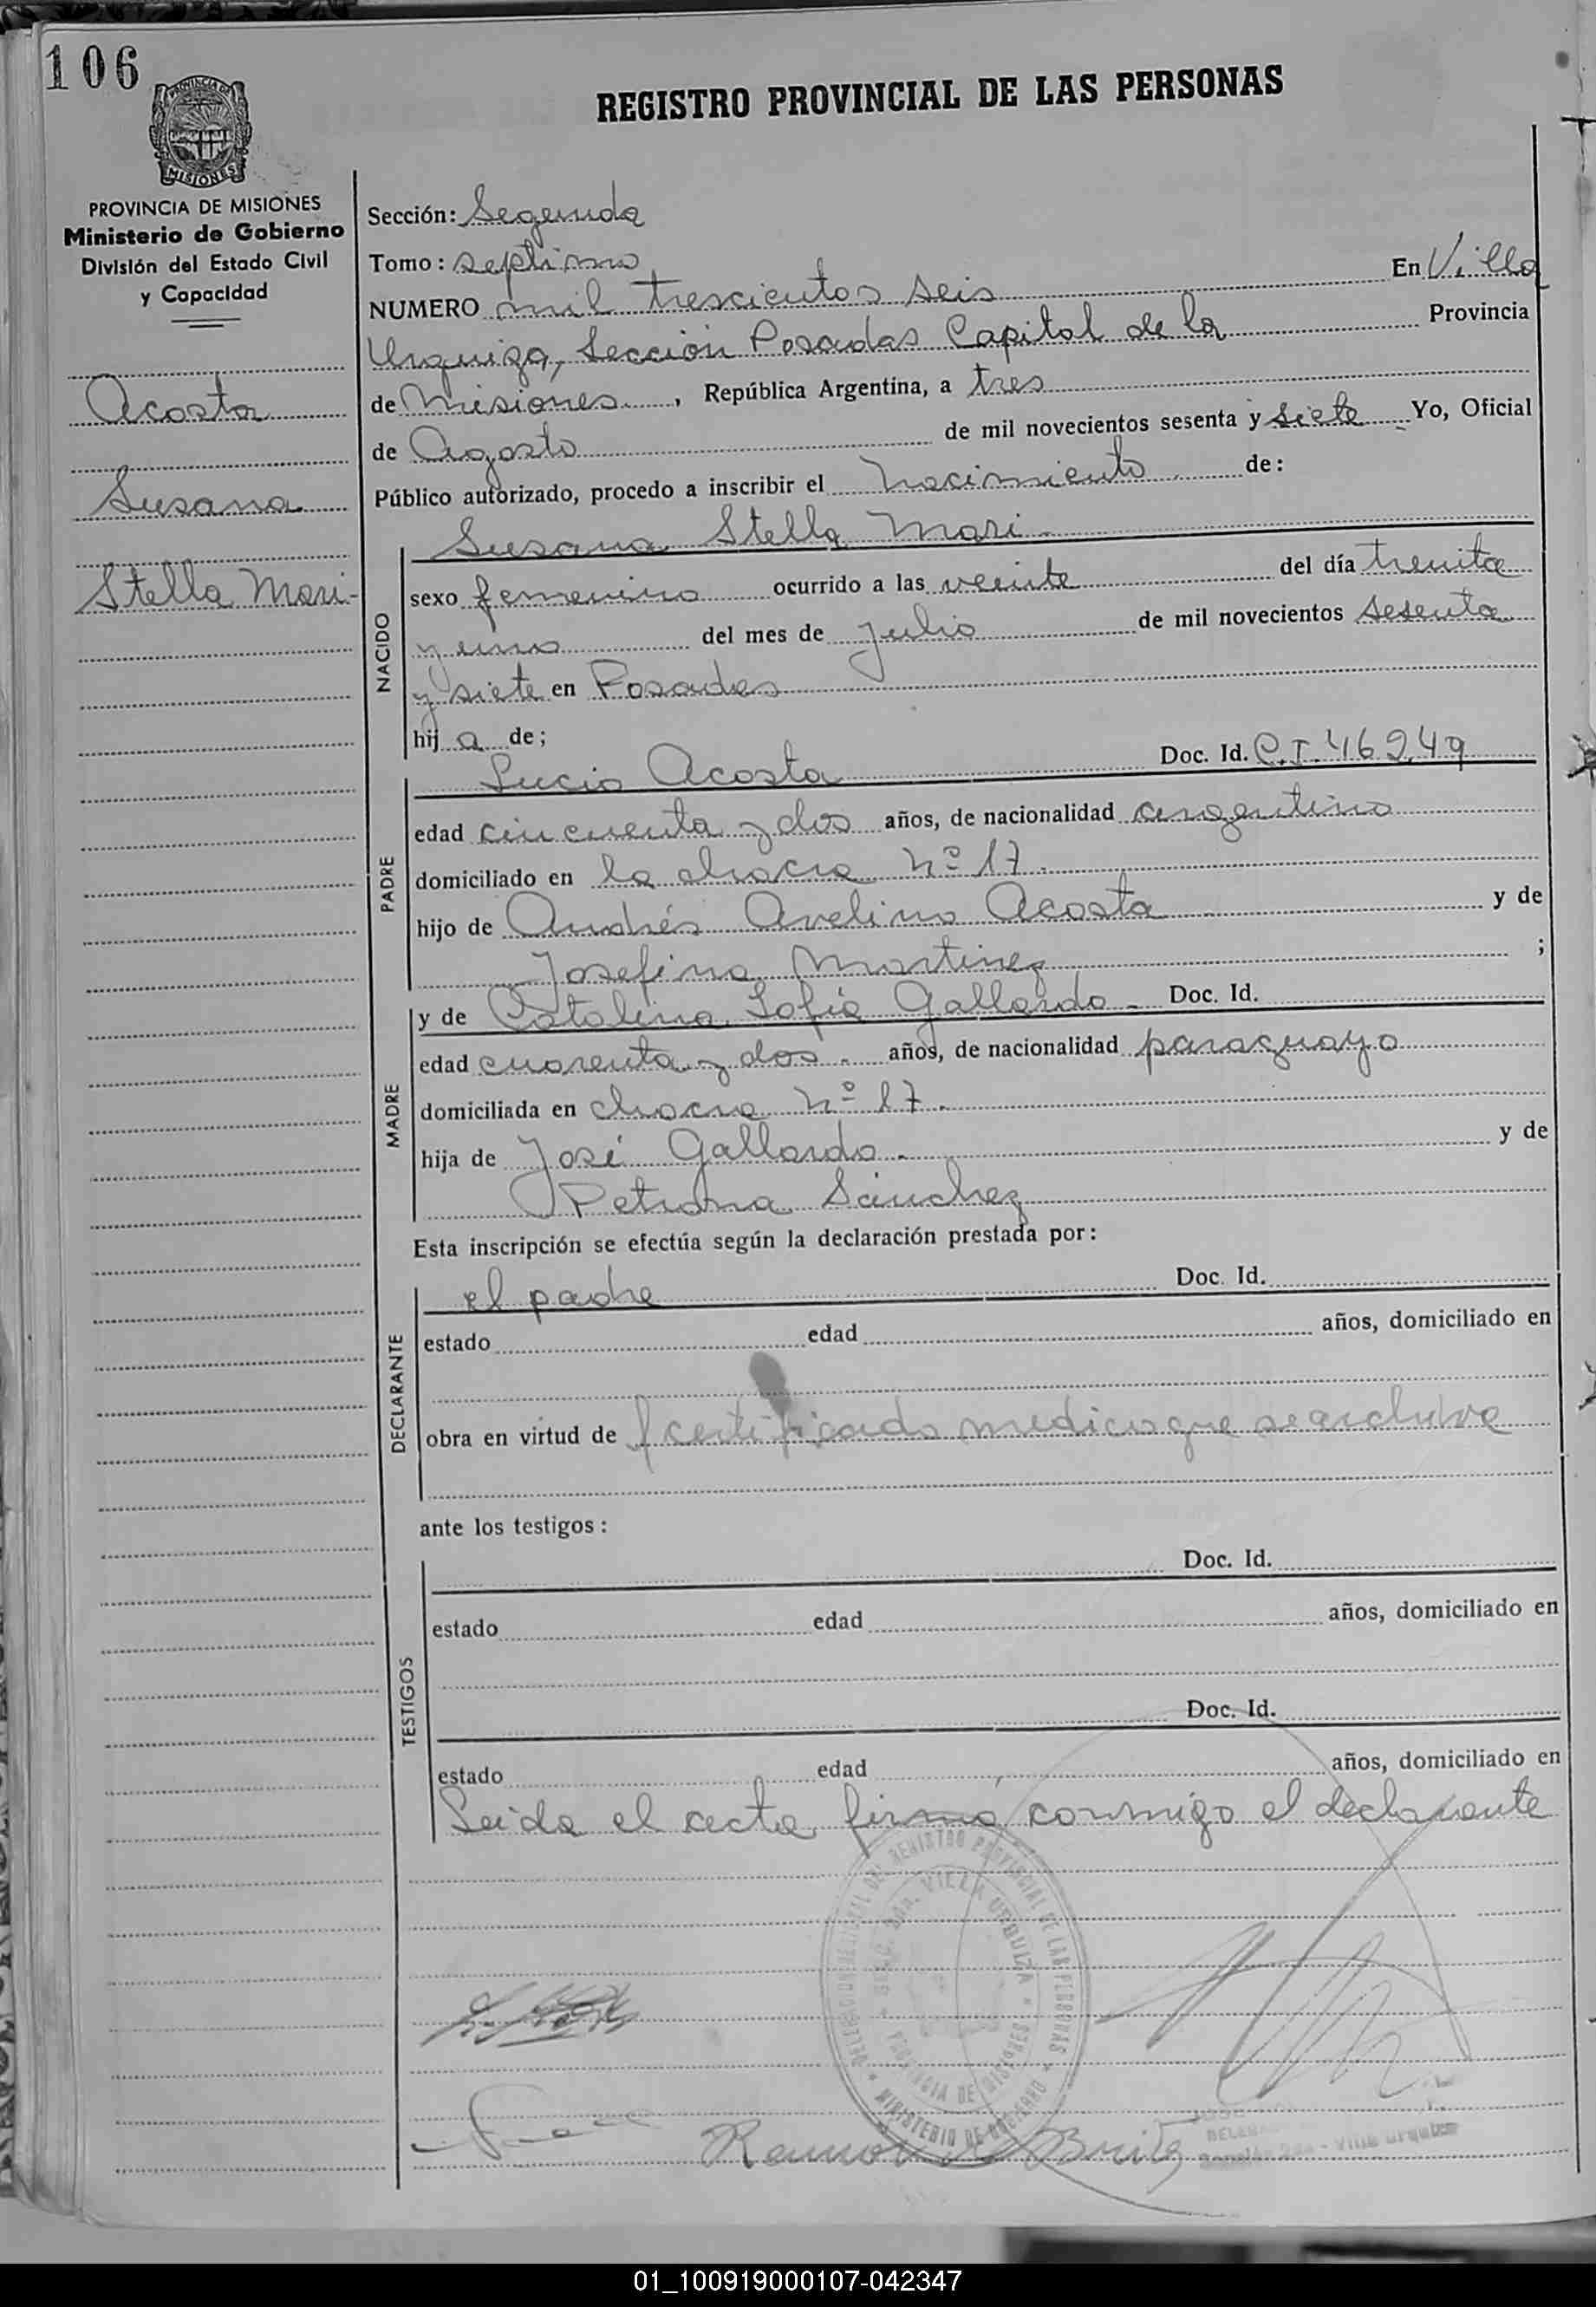 106
REGISTRO PROVINCIAL DE LAS PERSONAS
MISIONES
PROVINCIA DE MISIONES
Ministerio de Gobierno
División del Estado Civil
y Capacidad
Acosta
Susana
Stella Mari-
Sección: Segunda
Tomo: septimo
En Villa
NUMERO mil trescientos seis
Urquiza, Sección Posadas Capital de la Provincia
de Misiones, República Argentina, a tres
de Agosto de mil novecientos sesenta y siete Yo, Oficial
Público autorizado, procedo a inscribir el nacimiento de:
NACIDO
Susana Stella Mari-
sexo femenino ocurrido a las veinte del día treinta
y uno del mes de Julio de mil novecientos sesenta
y siete en Posadas
hija de;
PADRE
Lucio Acosta Doc. Id. C.I. 46249
edad cincuenta y dos años, de nacionalidad argentino
domiciliado en la chacra nº 17.
hijo de Andrés Avelino Acosta y de
Josefina Martinez ;
MADRE
y de Catalina Sofia Gallardo - Doc. Id.
edad cuarenta y dos. años, de nacionalidad paraguayo
domiciliada en chacra nº 17.
hija de José Gallardo. y de
Petrona Sánchez
Esta inscripción se efectúa según la declaración prestada por:
DECLARANTE
el padre Doc. Id.
estado edad años, domiciliado en
obra en virtud de certificado medico que se archiva
ante los testigos:
TESTIGOS
Doc. Id.
estado edad años, domiciliado en
Doc. Id.
estado edad años, domiciliado en
Leida el acta firmó conmigo el declarante
REGISTRO PROVINCIAL DE LAS PERSONAS
VILLA URQUIZA
PROVINCIA DE MISIONES
MINISTERIO DE GOBIERNO
Ramon Britez
Villa Urquiza
01_100919000107-042347